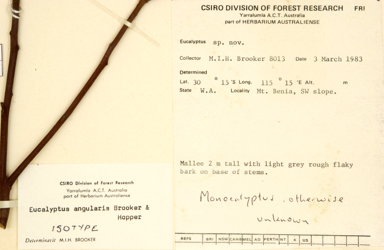 CSIRO DIVISION OF FOREST RESEARCH FRI
Yarralumla A.C.T. Australia
part of HERBARIUM AUSTRALIENSE
Eucalyptus sp. nov.
Collector M.I.H. Brooker 8013 Date 3 March 1983
Determined
Lat. 30 ° 15 'S Long. 115 ° 15 'E Alt. m
State W.A. Locality Mt. Benia, SW slope.
Mallee 2 m tall with light grey rough flaky
bark on base of stems.
Monocalyptus otherwise
unknown
CSIRO Division of Forest Research
Yarralumla A.C.T. Australia
part of Herbarium Australiense
Eucalyptus angularis Brooker &
Hopper
ISOTYPE
Determinavit M.I.H. BROOKER